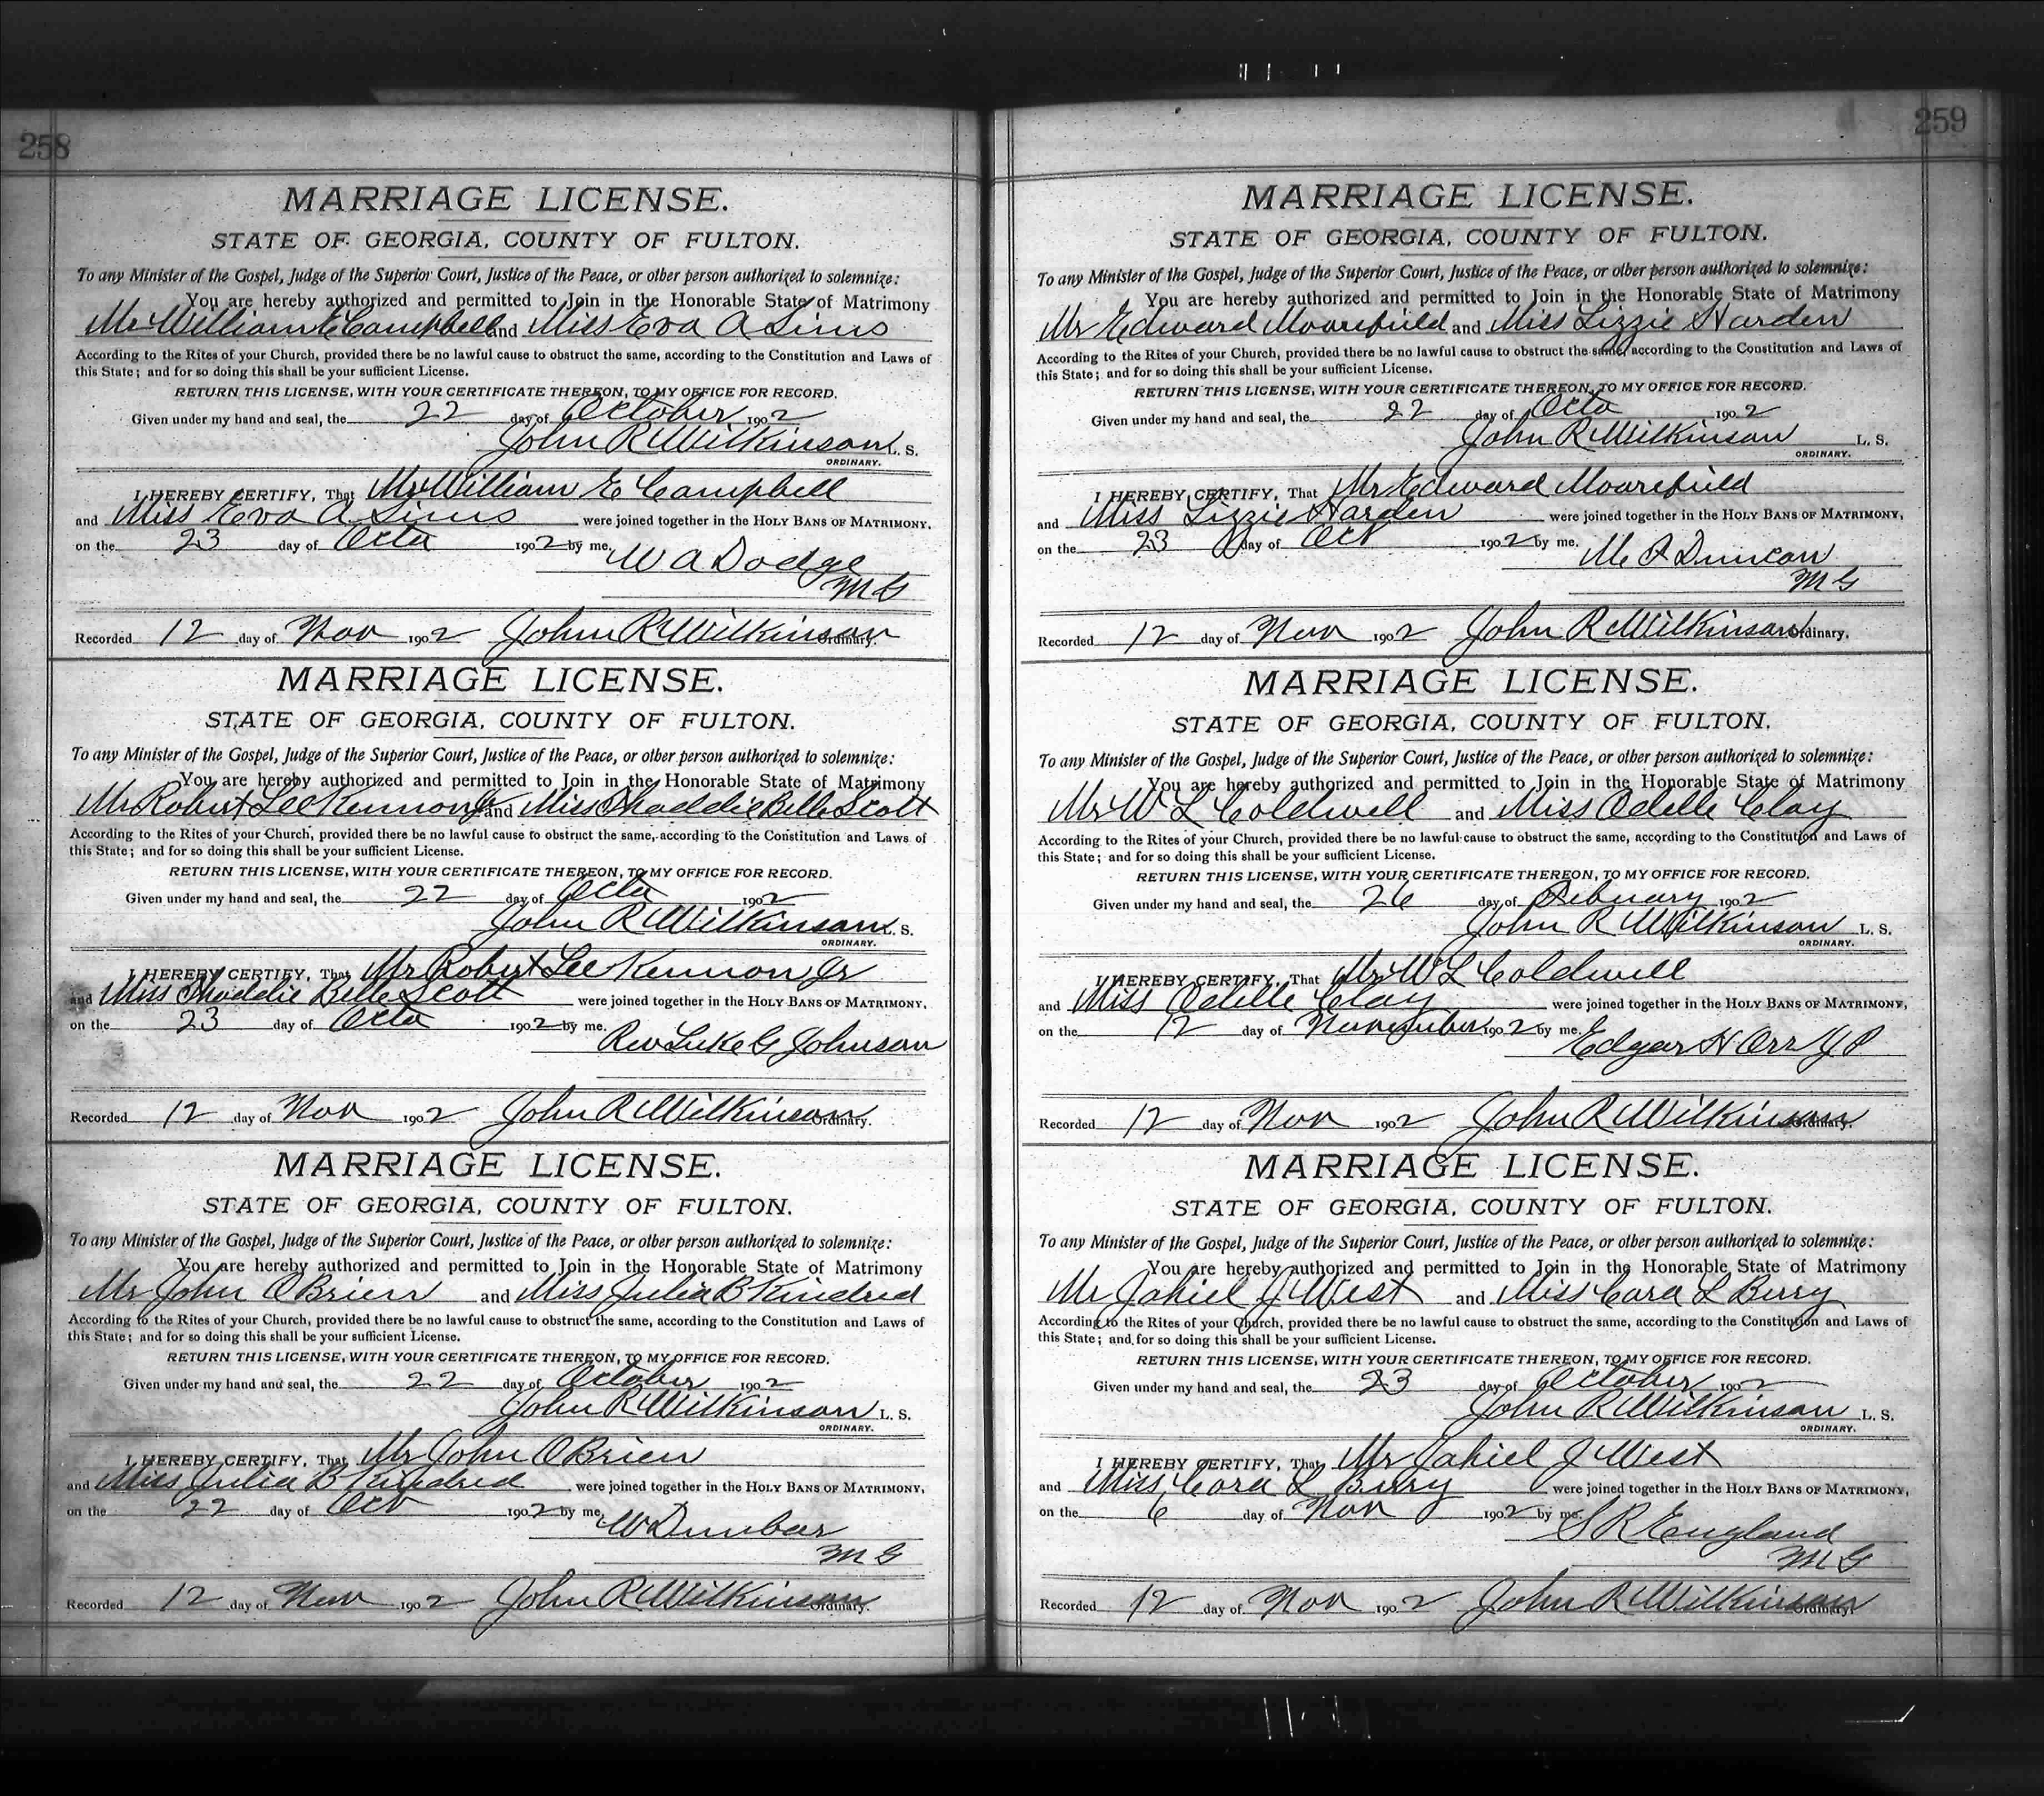 258
MARRIAGE LICENSE.
STATE OF GEORGIA, COUNTY OF FULTON.
To any Minister of the Gospel, Judge of the Superior Court, Justice of the Peace, or other person authorized to solemnize:
You are hereby authorized and permitted to Join in the Honorable State of Matrimony
Mr William E Campbell and Miss Eva A Sims
According to the Rites of your Church, provided there be no lawful cause to obstruct the same, according to the Constitution and Laws of
this State; and for so doing this shall be your sufficient License.
RETURN THIS LICENSE, WITH YOUR CERTIFICATE THEREON, TO MY OFFICE FOR RECORD.
Given under my hand and seal, the 22 day of October 1902
John R Wilkinson L. S.
ORDINARY.
I HEREBY CERTIFY, That Mr William E Campbell
and Miss Eva A Sims were joined together in the HOLY BANS OF MATRIMONY,
on the 23 day of Octo 1902 by me. W A Dodge
M G
Recorded 12 day of Nov 1902 John R Wilkinson Ordinary.
MARRIAGE LICENSE.
STATE OF GEORGIA, COUNTY OF FULTON.
To any Minister of the Gospel, Judge of the Superior Court, Justice of the Peace, or other person authorized to solemnize:
You are hereby authorized and permitted to Join in the Honorable State of Matrimony
Mr Robert Lee Kennon Jr and Miss Belle Scott
According to the Rites of your Church, provided there be no lawful cause to obstruct the same, according to the Constitution and Laws of
this State; and for so doing this shall be your sufficient License.
RETURN THIS LICENSE, WITH YOUR CERTIFICATE THEREON, TO MY OFFICE FOR RECORD.
Given under my hand and seal, the 22 day of Octo 1902
John R Wilkinson L. S.
ORDINARY.
I HEREBY CERTIFY, That Mr Robert Lee Kennon Jr
and Miss Belle Scott were joined together in the HOLY BANS OF MATRIMONY,
on the 23 day of Octo 1902 by me.
Rev Luke G Johnson
Recorded 12 day of Nov 1902 John R Wilkinson Ordinary.
MARRIAGE LICENSE.
STATE OF GEORGIA, COUNTY OF FULTON.
To any Minister of the Gospel, Judge of the Superior Court, Justice of the Peace, or other person authorized to solemnize:
You are hereby authorized and permitted to Join in the Honorable State of Matrimony
Mr John OBrien and Miss Julia B Kindred
According to the Rites of your Church, provided there be no lawful cause to obstruct the same, according to the Constitution and Laws of
this State; and for so doing this shall be your sufficient License.
RETURN THIS LICENSE, WITH YOUR CERTIFICATE THEREON, TO MY OFFICE FOR RECORD.
Given under my hand and seal, the 22 day of October 1902
John R Wilkinson L. S.
ORDINARY.
I HEREBY CERTIFY, That Mr John OBrien
and Miss Julia B Kindred were joined together in the HOLY BANS OF MATRIMONY,
on the 22 day of Oct 1902 by me. W Dunbar
M G
Recorded 12 day of Nov 1902 John R Wilkinson Ordinary.
259
MARRIAGE LICENSE.
STATE OF GEORGIA, COUNTY OF FULTON.
To any Minister of the Gospel, Judge of the Superior Court, Justice of the Peace, or other person authorized to solemnize:
You are hereby authorized and permitted to Join in the Honorable State of Matrimony
Mr Edward Moorefield and Miss Lizzie Harden
According to the Rites of your Church, provided there be no lawful cause to obstruct the same, according to the Constitution and Laws of
this State; and for so doing this shall be your sufficient License.
RETURN THIS LICENSE, WITH YOUR CERTIFICATE THEREON, TO MY OFFICE FOR RECORD.
Given under my hand and seal, the 22 day of Octo 1902
John R Wilkinson L. S.
ORDINARY.
I HEREBY CERTIFY, That Mr Edward Moorefield
and Miss Lizzie Harden were joined together in the HOLY BANS OF MATRIMONY,
on the 23 day of Oct 1902 by me. Duncan
M G
Recorded 12 day of Nov 1902 John R Wilkinson Ordinary.
MARRIAGE LICENSE.
STATE OF GEORGIA, COUNTY OF FULTON.
To any Minister of the Gospel, Judge of the Superior Court, Justice of the Peace, or other person authorized to solemnize:
You are hereby authorized and permitted to Join in the Honorable State of Matrimony
Mr W L Coldwell and Miss Odelle Clay
According to the Rites of your Church, provided there be no lawful cause to obstruct the same, according to the Constitution and Laws of
this State; and for so doing this shall be your sufficient License.
RETURN THIS LICENSE, WITH YOUR CERTIFICATE THEREON, TO MY OFFICE FOR RECORD.
Given under my hand and seal, the 26 day of February 1902
John R Wilkinson L. S.
ORDINARY.
I HEREBY CERTIFY, That Mr W L Coldwell
and Miss Odelle Clay were joined together in the HOLY BANS OF MATRIMONY,
on the 12 day of November 1902 by me.
Edgar H Orr J P
Recorded 12 day of Nov 1902 John R Wilkinson Ordinary.
MARRIAGE LICENSE.
STATE OF GEORGIA, COUNTY OF FULTON.
To any Minister of the Gospel, Judge of the Superior Court, Justice of the Peace, or other person authorized to solemnize:
You are hereby authorized and permitted to Join in the Honorable State of Matrimony
Mr Jahiel J West and Miss Cora L Berry
According to the Rites of your Church, provided there be no lawful cause to obstruct the same, according to the Constitution and Laws of
this State; and for so doing this shall be your sufficient License.
RETURN THIS LICENSE, WITH YOUR CERTIFICATE THEREON, TO MY OFFICE FOR RECORD.
Given under my hand and seal, the 23 day of October 1902
John R Wilkinson L. S.
ORDINARY.
I HEREBY CERTIFY, That Mr Jahiel J West
and Miss Cora L Berry were joined together in the HOLY BANS OF MATRIMONY,
on the 6 day of Nov 1902 by me. S R England
M G
Recorded 12 day of Nov 1902 John R Wilkinson Ordinary.